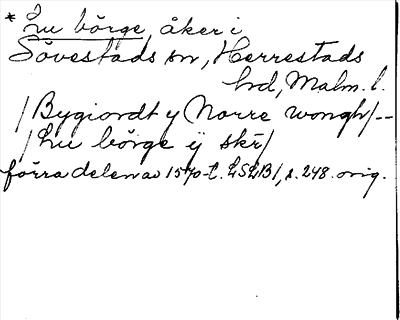 * Lu börge, åker i
Sövestads sn, Herrestads
hrd, Malm. l.
/Bygiordt y Norre wongh/--
/Lu börge ÿ skr/
förra delen av 1570-t. LSLB1, s. 248. orig.